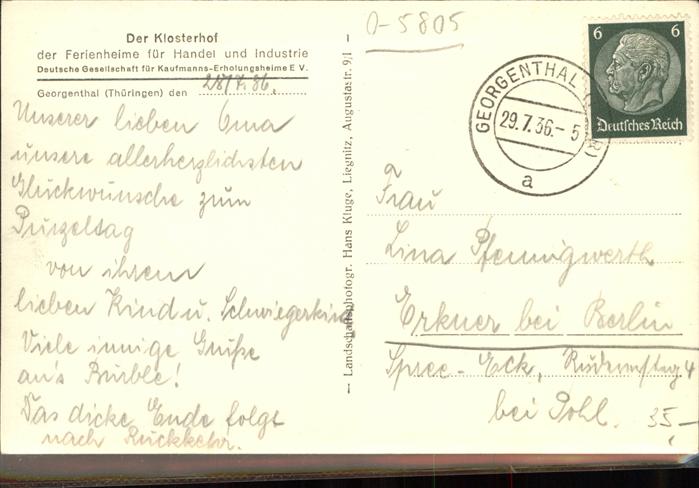 Der Klosterhof
der Ferienheime für Handel und Industrie
Deutsche Gesellschaft für Kaufmanns-Erholungsheime E V.
Georgenthal (Thüringen) den 28/7.36.
Unserer lieben Oma
unsere allerherzlichsten
Glückwünsche zum
Purzeltag
von ihrem
lieben Kind u. Schwiegerkind
Viele innige Grüße
an's Burble!
Das dicke Ende folgt
nach Rückkehr.
— Landschaftsphotogr. Hans Kluge, Liegnitz, Augustastr. 9,I —
0-5805
GEORGENTHAL
29.7.36.- 5
a
6 6
Deutsches Reich
Frau
Lina Pfennigwerth
Erkner bei Berlin
Spree-Eck, 4
bei Pohl.
35,-